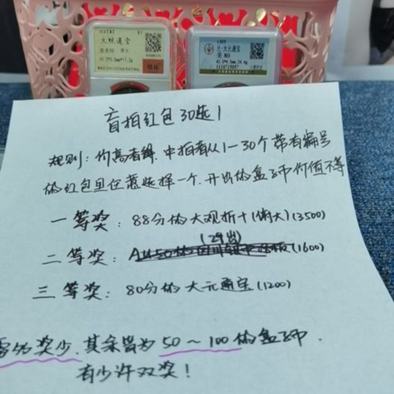 大观通宝
大元通宝
盲拍红包30选1
规则：价高者得，中拍者从1-30个带有编号
的红包里任意选择一个，开出的盒子币价值不等
一等奖：88分的大观折十(满大)(3500)
(29出)
二等奖：(1600)
三等奖：80分的大元通宝(1200)
奖少，其余皆为50～100的盒子币.
有少许双奖！